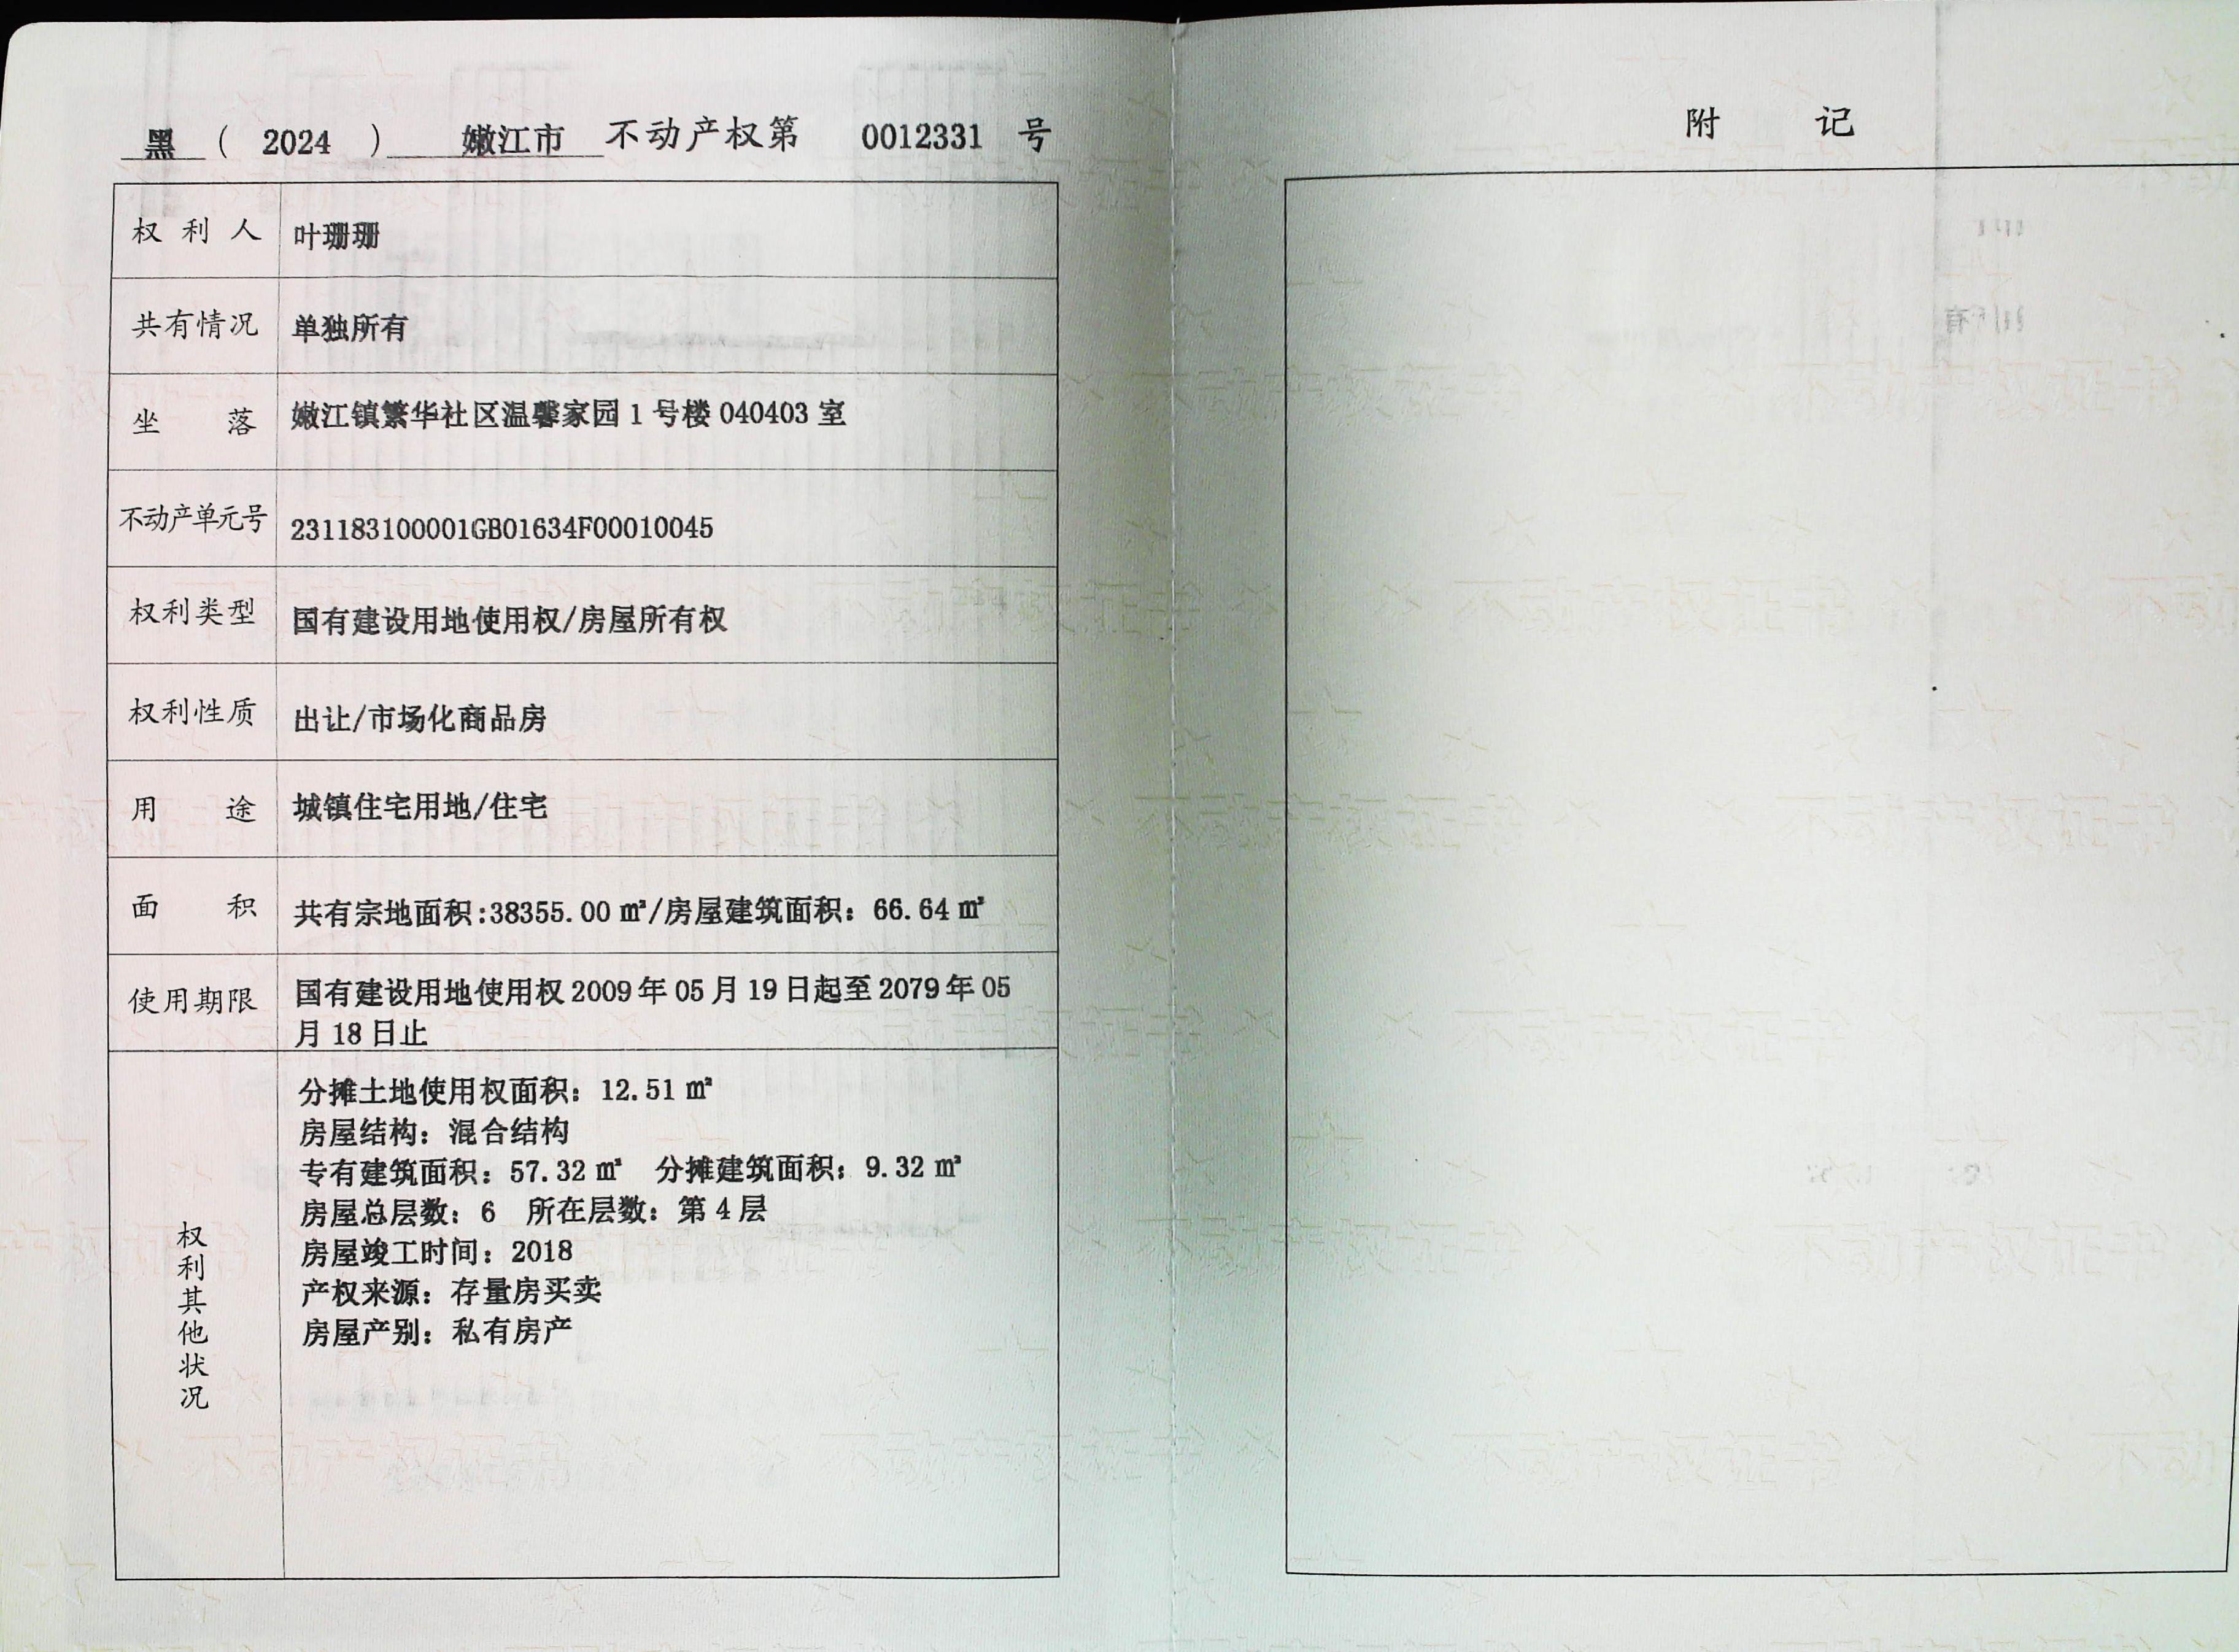 黑 ( 2024 ) 嫩江市 不动产权第 0012331 号
权利人 叶珊珊
共有情况 单独所有
坐落 嫩江镇繁华社区温馨家园 1 号楼 040403 室
不动产单元号 231183100001GB01634F00010045
权利类型 国有建设用地使用权/房屋所有权
权利性质 出让/市场化商品房
用途 城镇住宅用地/住宅
面积 共有宗地面积:38355.00 ㎡/房屋建筑面积：66.64 ㎡
使用期限 国有建设用地使用权 2009 年 05 月 19 日起至 2079 年 05
月 18 日止
权利其他状况
分摊土地使用权面积：12.51 ㎡
房屋结构：混合结构
专有建筑面积：57.32 ㎡ 分摊建筑面积：9.32 ㎡
房屋总层数：6 所在层数：第 4 层
房屋竣工时间：2018
产权来源：存量房买卖
房屋产别：私有房产
附记